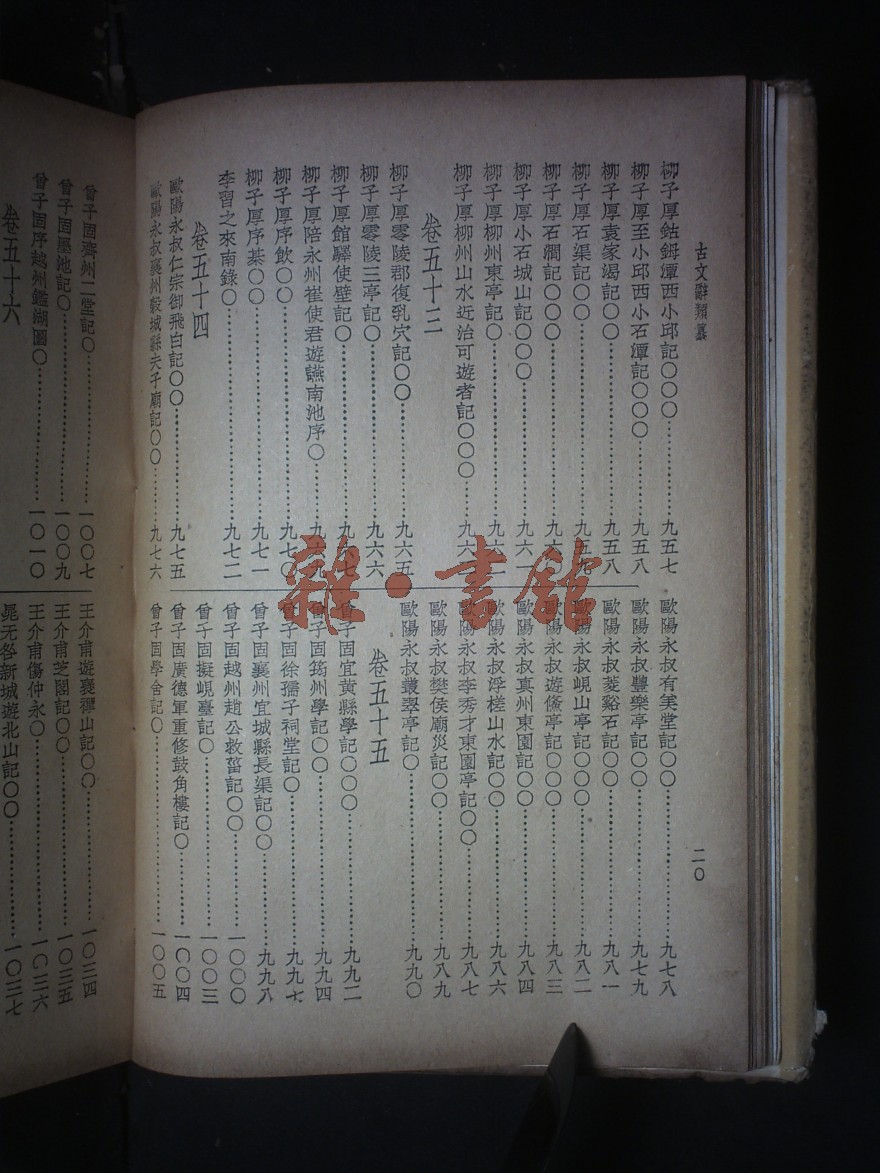 古文辭類纂
二〇
柳子厚鈷鉧潭西小邱記〇〇〇……九五七
柳子厚至小邱西小石潭記〇〇〇……九五八
柳子厚袁家渴記〇〇〇……九五八
柳子厚石渠記〇〇〇……九五九
柳子厚石澗記〇〇〇……九六
柳子厚小石城山記〇〇〇……九六一
柳子厚柳州東亭記〇〇……九六
柳子厚柳州山水近治可遊者記〇〇〇……九六
卷五十三
柳子厚零陵郡復乳穴記〇〇……九六五
柳子厚零陵三亭記〇……九六六
柳子厚館驛使壁記〇……九六七
柳子厚陪永州崔使君遊讌南池序〇……九六九
柳子厚序飲〇〇……九七〇
柳子厚序棊〇〇……九七一
李習之來南錄〇……九七二
卷五十四
歐陽永叔仁宗御飛白記〇〇……九七五
歐陽永叔襄州穀城縣夫子廟記〇〇……九七六
歐陽永叔有美堂記〇〇……九七八
歐陽永叔豐樂亭記〇〇〇……九七九
歐陽永叔菱谿石記〇〇……九八一
歐陽永叔峴山亭記〇〇〇……九八二
歐陽永叔遊儵亭記〇〇〇……九八三
歐陽永叔真州東園記〇〇……九八四
歐陽永叔浮槎山水記〇〇……九八六
歐陽永叔李秀才東園亭記〇〇……九八七
歐陽永叔樊侯廟災記〇〇……九八九
歐陽永叔叢翠亭記〇……九九〇
卷五十五
曾子固宜黃縣學記〇〇〇……九九二
曾子固筠州學記〇〇……九九四
曾子固徐孺子祠堂記〇……九九七
曾子固襄州宜城縣長渠記〇〇……九九八
曾子固越州趙公救菑記〇〇……一〇〇〇
曾子固擬峴臺記〇……一〇〇三
曾子固廣德軍重修鼓角樓記〇……一〇〇四
曾子固學舍記〇……一〇〇五
曾子固齊州二堂記〇……一〇〇七
曾子固墨池記〇……一〇〇九
曾子固序越州鑑湖圖〇……一〇一〇
卷五十六
王介甫遊褒禪山記〇〇……一〇三四
王介甫芝閣記〇〇……一〇三五
王介甫傷仲永〇……一〇三六
晁无咎新城遊北山記〇〇……一〇三七
雜·書館